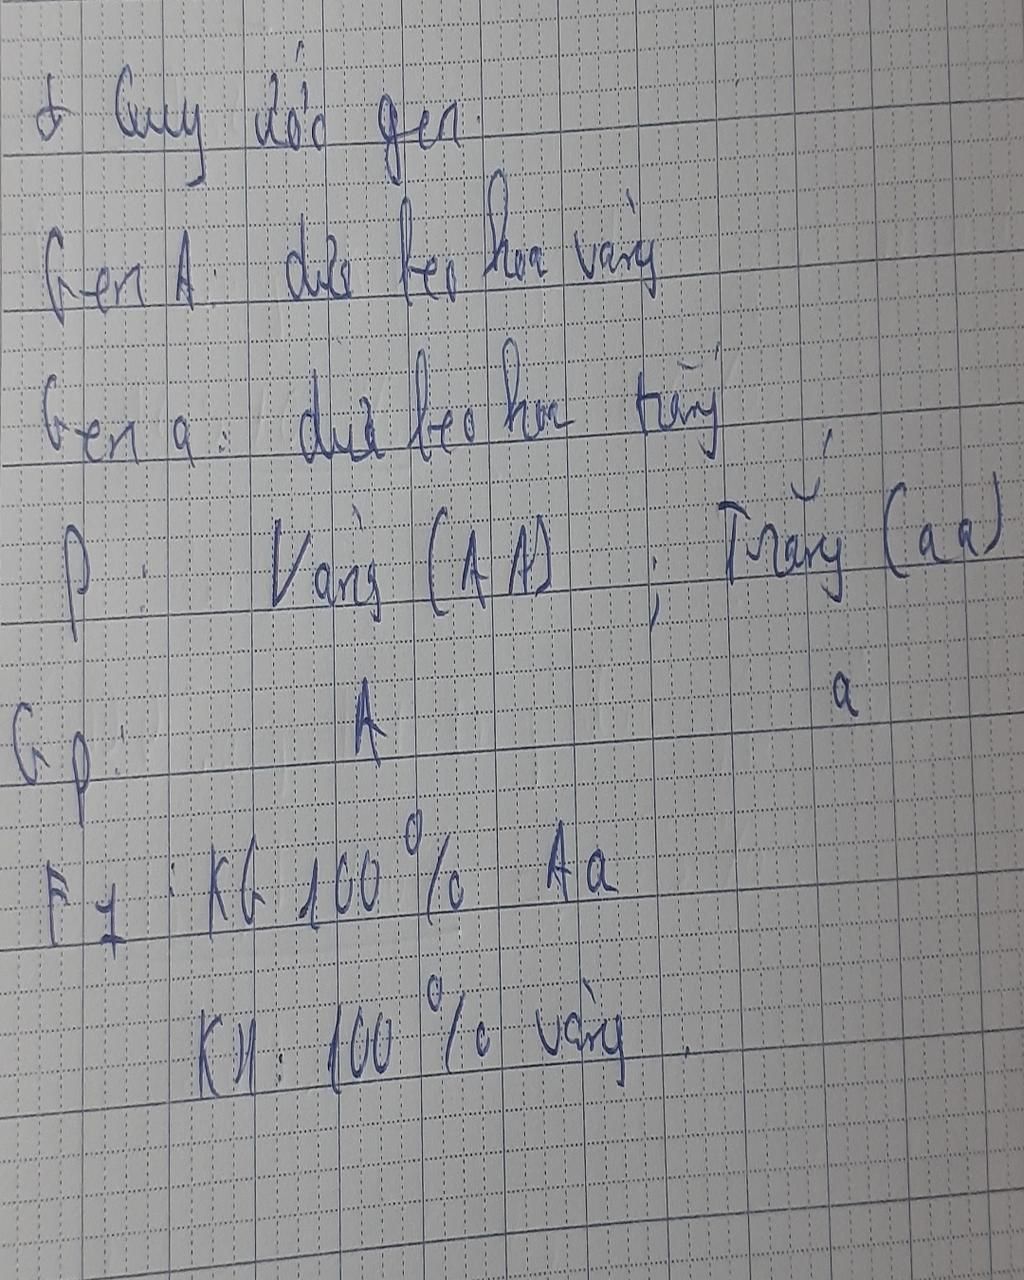 + Quy ước gen.
Gen A: dưa leo hoa vàng
Gen a: dưa leo hoa trắng
P: Vàng (AA) ; Trắng (aa)
Gp: A a
F1: KG 100% Aa
KH: 100% vàng.